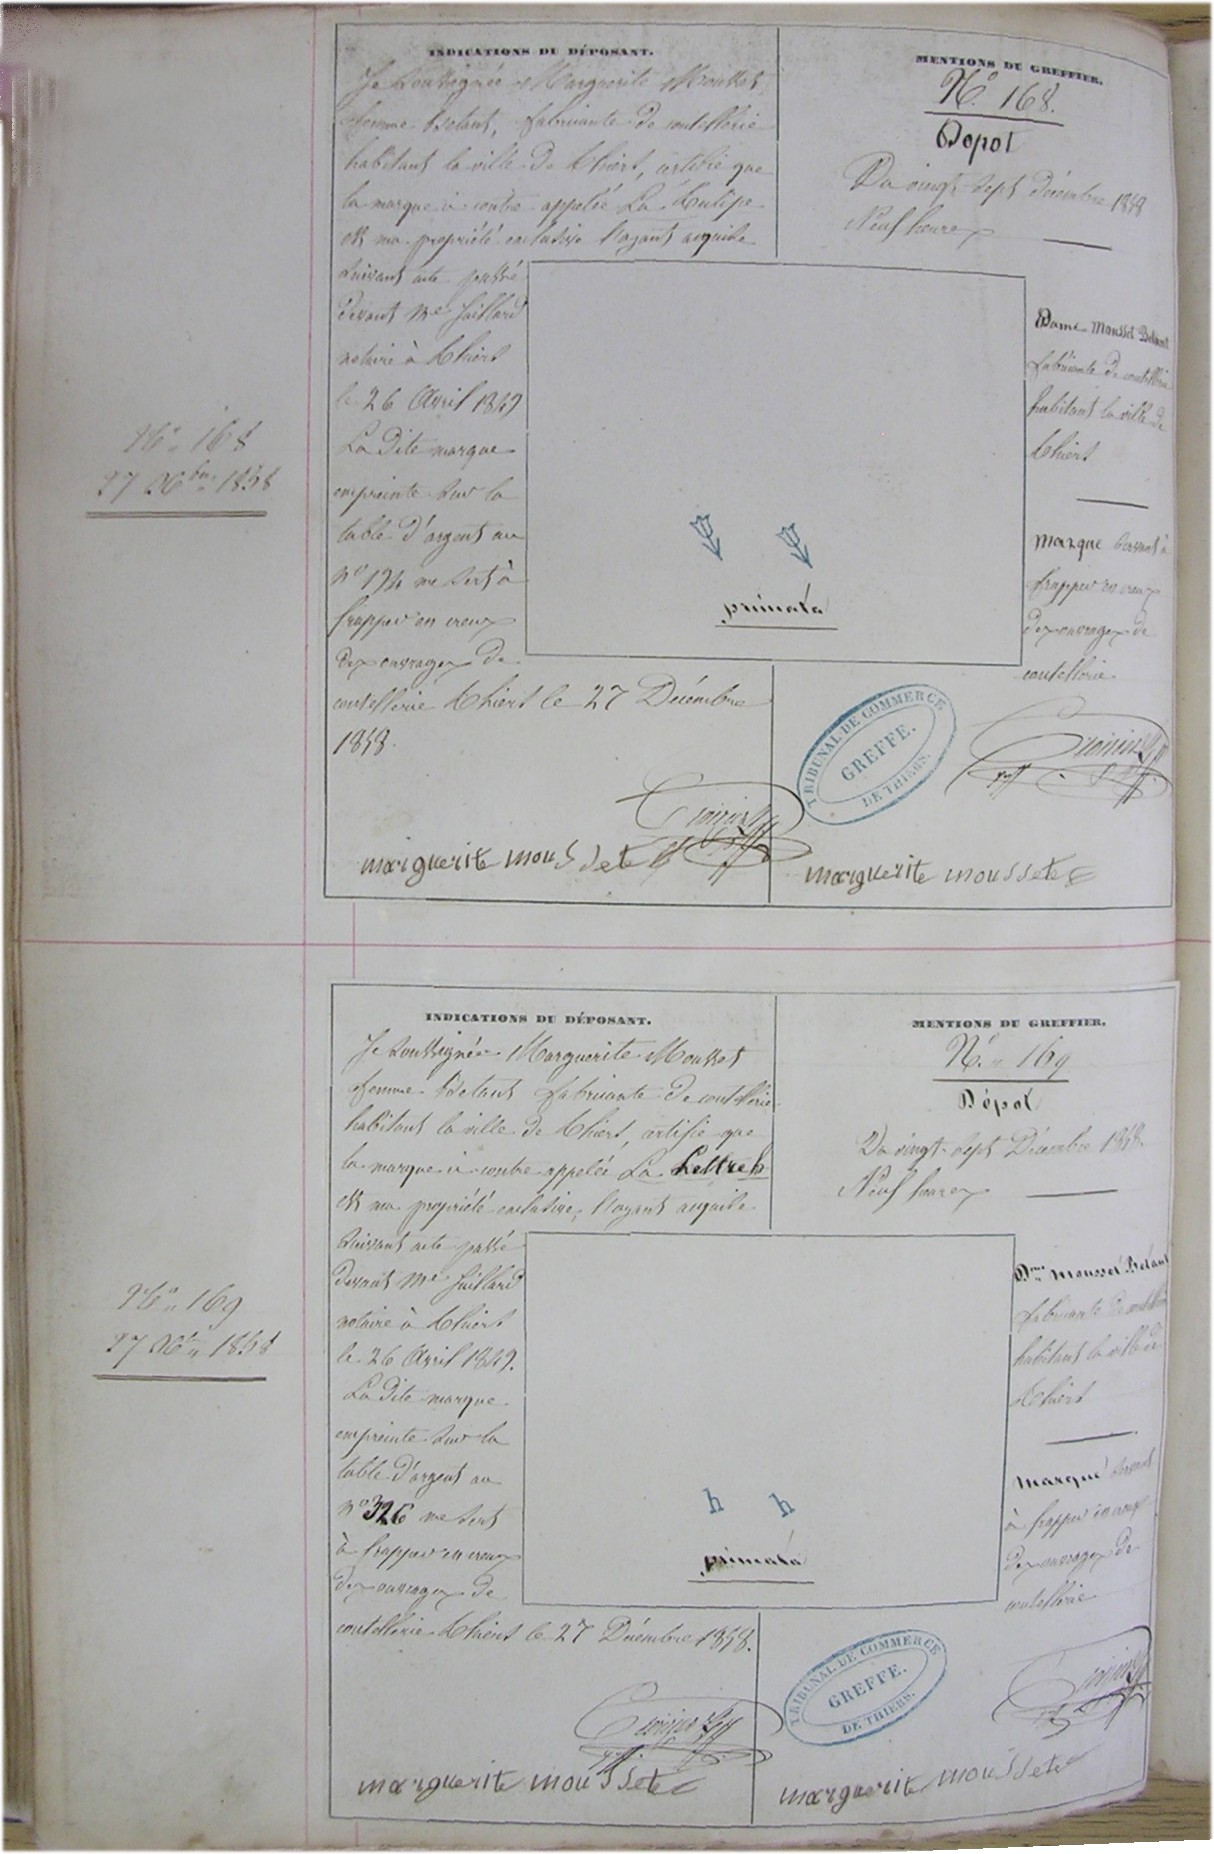 INDICATIONS DU DÉPOSANT.
Je soussignée Marguerite Mousset
femme Betant, fabricante de coutellerie
habitant la ville de Thiers, certifie que
la marque ci contre appelée La Tulipe
est ma propriété exclusive l'ayant acquise
suivant acte passé
devant Me
notaire à Thiers
le 26 Avril 1849
La dite marque
empreinte sur la
table d'argent au
No 194 me sert à
frapper en creux
des ouvrages de
coutellerie Thiers le 27 Décembre
1858.
marguerite moussete
MENTIONS DU GREFFIER.
No 168.
Depot
Du vingt sept décembre 1858
Neuf heures
Dame Mousset Betant
fabricante de coutellerie
habitant la ville de
Thiers
marque servant à
frapper en creux
des ouvrages de
coutellerie
primata
TRIBUNAL DE COMMERCE
GREFFE.
DE THIERS.
marguerite moussete
No 168
27 Xbre 1858
INDICATIONS DU DÉPOSANT.
Je soussignée Marguerite Mousset
femme Betant fabricante de coutellerie
habitant la ville de Thiers, certifie que
la marque ci contre appelée La Lettre h
est ma propriété exclusive, l'ayant acquise
suivant acte passé
devant Me
notaire à Thiers
le 26 Avril 1849.
La dite marque
empreinte sur la
table d'argent au
No 326 me sert
à frapper en creux
des ouvrages de
coutellerie Thiers le 27 Décembre 1858.
marguerite moussete
MENTIONS DU GREFFIER.
No 169
Dépot
Du vingt-sept Décembre 1858.
Neuf heures
Dme mousset Betant
fabricante de coutellerie
habitant la ville de
Thiers
marque servant
à frapper en creux
des ouvrages de
coutellerie
h h
primata
TRIBUNAL DE COMMERCE
GREFFE.
DE THIERS.
marguerite moussete
No 169
27 Xbre 1858